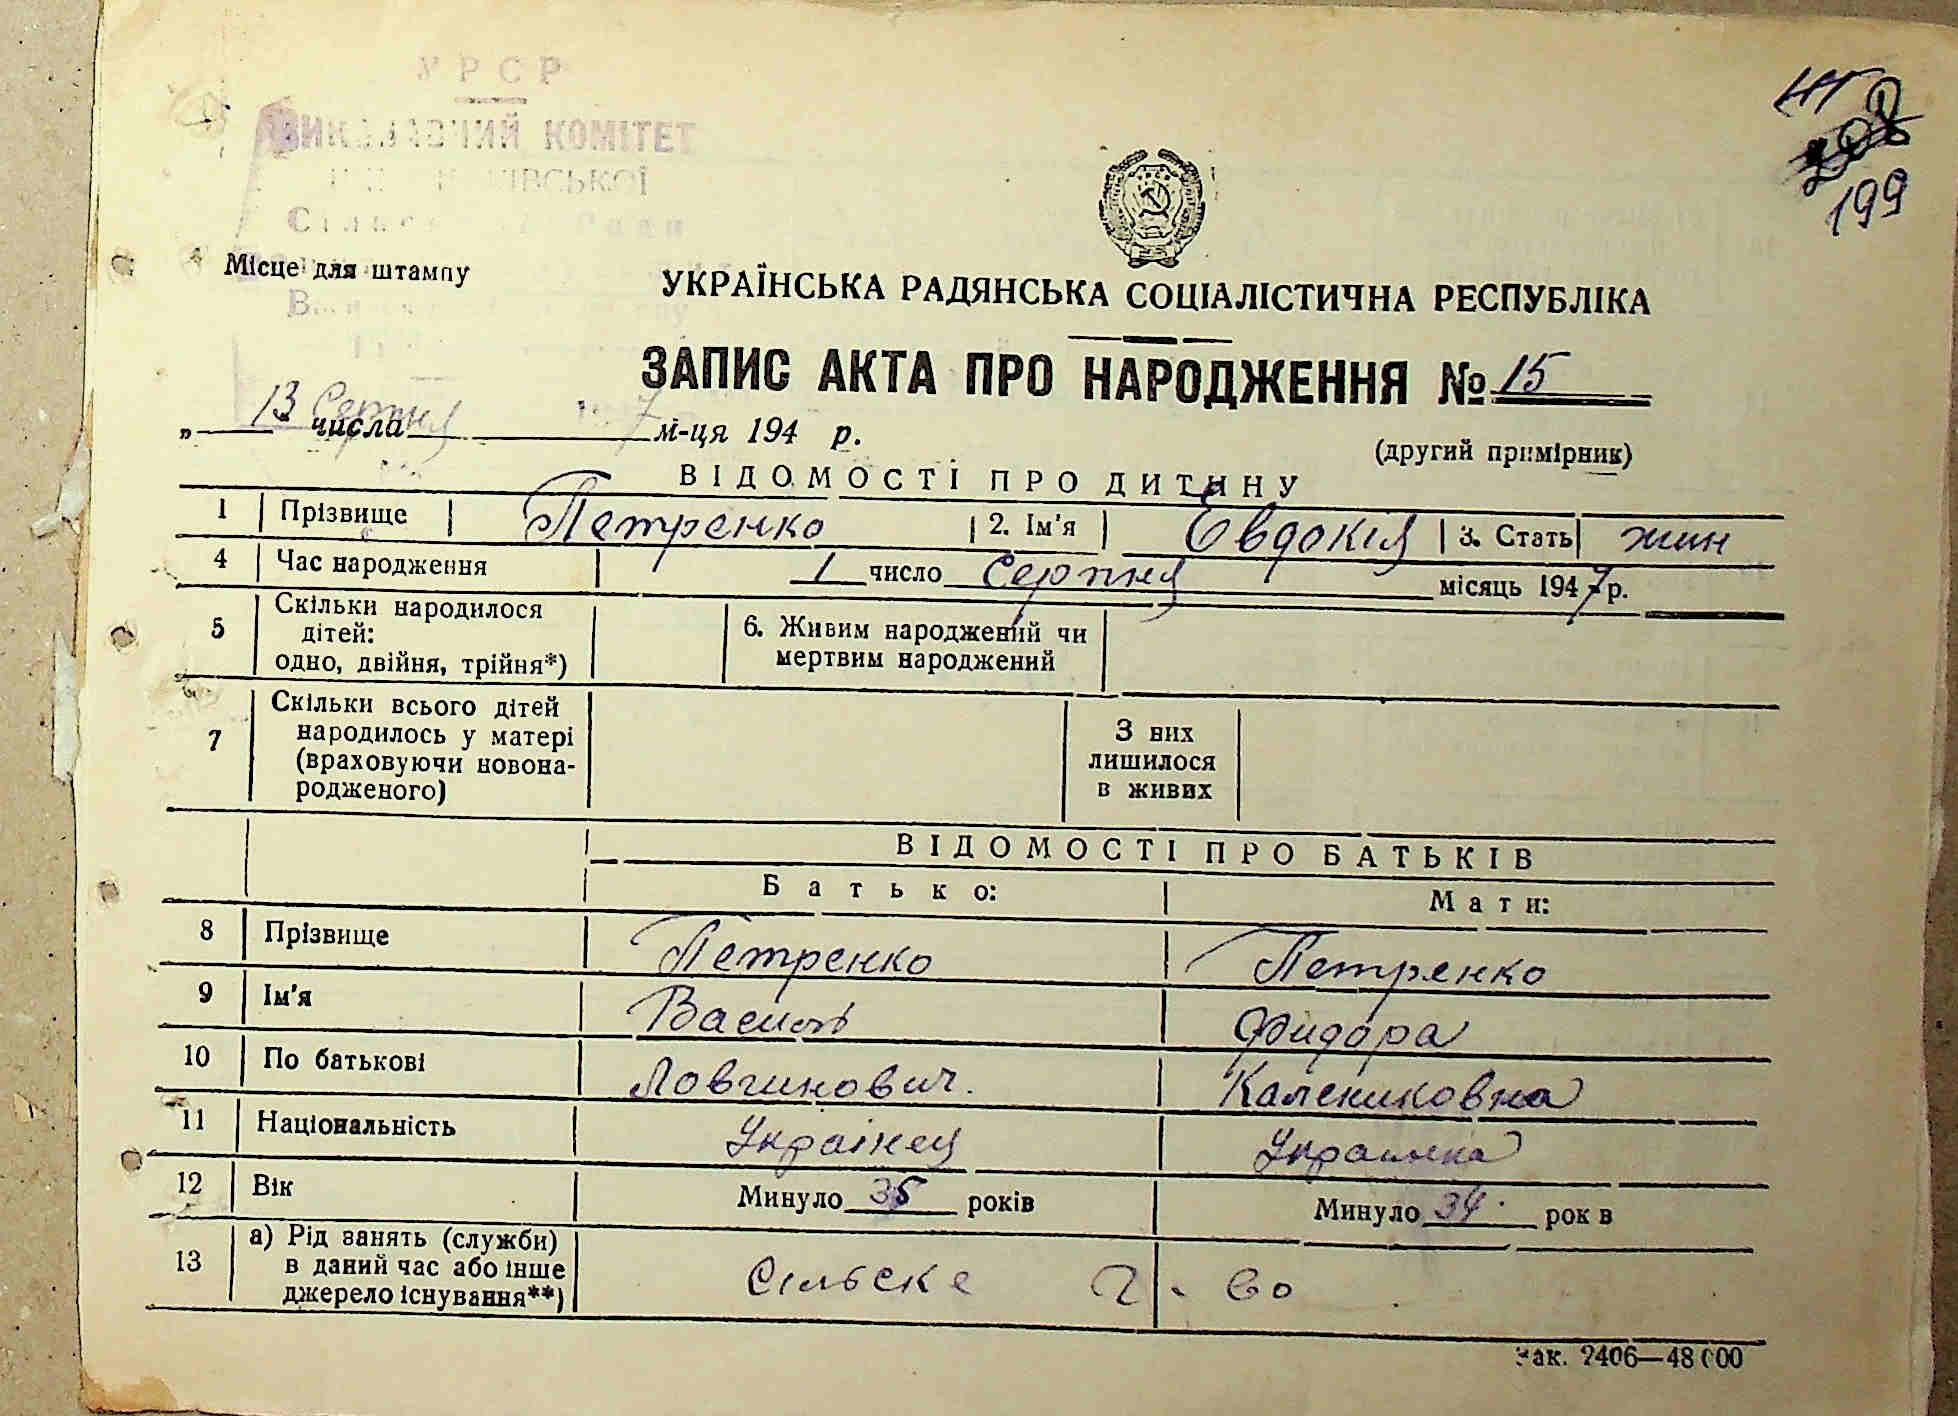 УРСР
ВИКОНАВЧИЙ КОМІТЕТ
Місце для штампу
199
УКРАЇНСЬКА РАДЯНСЬКА СОЦІАЛІСТИЧНА РЕСПУБЛІКА
ЗАПИС АКТА ПРО НАРОДЖЕННЯ № 15
„ 13 числа Серпня м-ця 1947 р.
(другий примірник)
ВІДОМОСТІ ПРО ДИТИНУ
1 Прізвище Петренко 2. Ім'я Євдокія 3. Стать жин
4 Час народження 1 число Серпня місяць 1947 р.
5 Скільки народилося дітей: одно, двійня, трійня*) 6. Живим народжений чи мертвим народжений
7 Скільки всього дітей народилось у матері (враховуючи новона-родженого) З них лишилося в живих
ВІДОМОСТІ ПРО БАТЬКІВ
Батько: Мати:
8 Прізвище Петренко Петренко
9 Ім'я Василь Фидора
10 По батькові Ловгинович. Калениковна
11 Національність Українец Украинка
12 Вік Минуло 35 років Минуло 34 рок в
13 а) Рід занять (служби) в даний час або інше джерело існування**) Сільске г-во
Зак. 2406—48 000